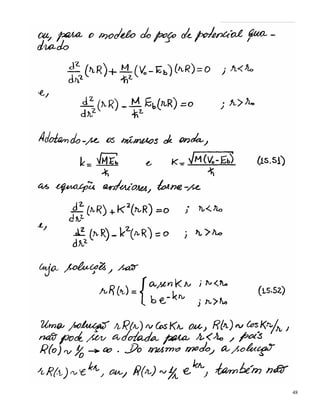 ou, para o modelo do poço de potencial qua-
drado
d²/dr² (rR) + M/ħ² (V₀ - E_b)(rR) = 0 ; r < r₀
e,
d²/dr² (rR) - M/ħ² E_b (rR) = 0 ; r > r₀
Adotando-se os números de onda,
k = √(ME_b)/ħ e K = √(M(V₀-E_b))/ħ (15.51)
as equações anteriores, torna-se
d²/dr² (rR) + K²(rR) = 0 ; r < r₀
e,
d²/dr² (rR) - k²(rR) = 0 ; r > r₀
Cuja solução, são
rR(r) = { a sen Kr ; r < r₀
b e^-kr ; r > r₀ (15.52)
Uma solução rR(r) ~ Cos Kr ou, R(r) ~ Cos Kr/r,
não pode ser adotada para r < r₀, pois
R(0) ~ 1/0 → ∞. Do mesmo modo, a solução
rR(r) ~ e^kr, ou, R(r) ~ 1/r e^kr, também não
48